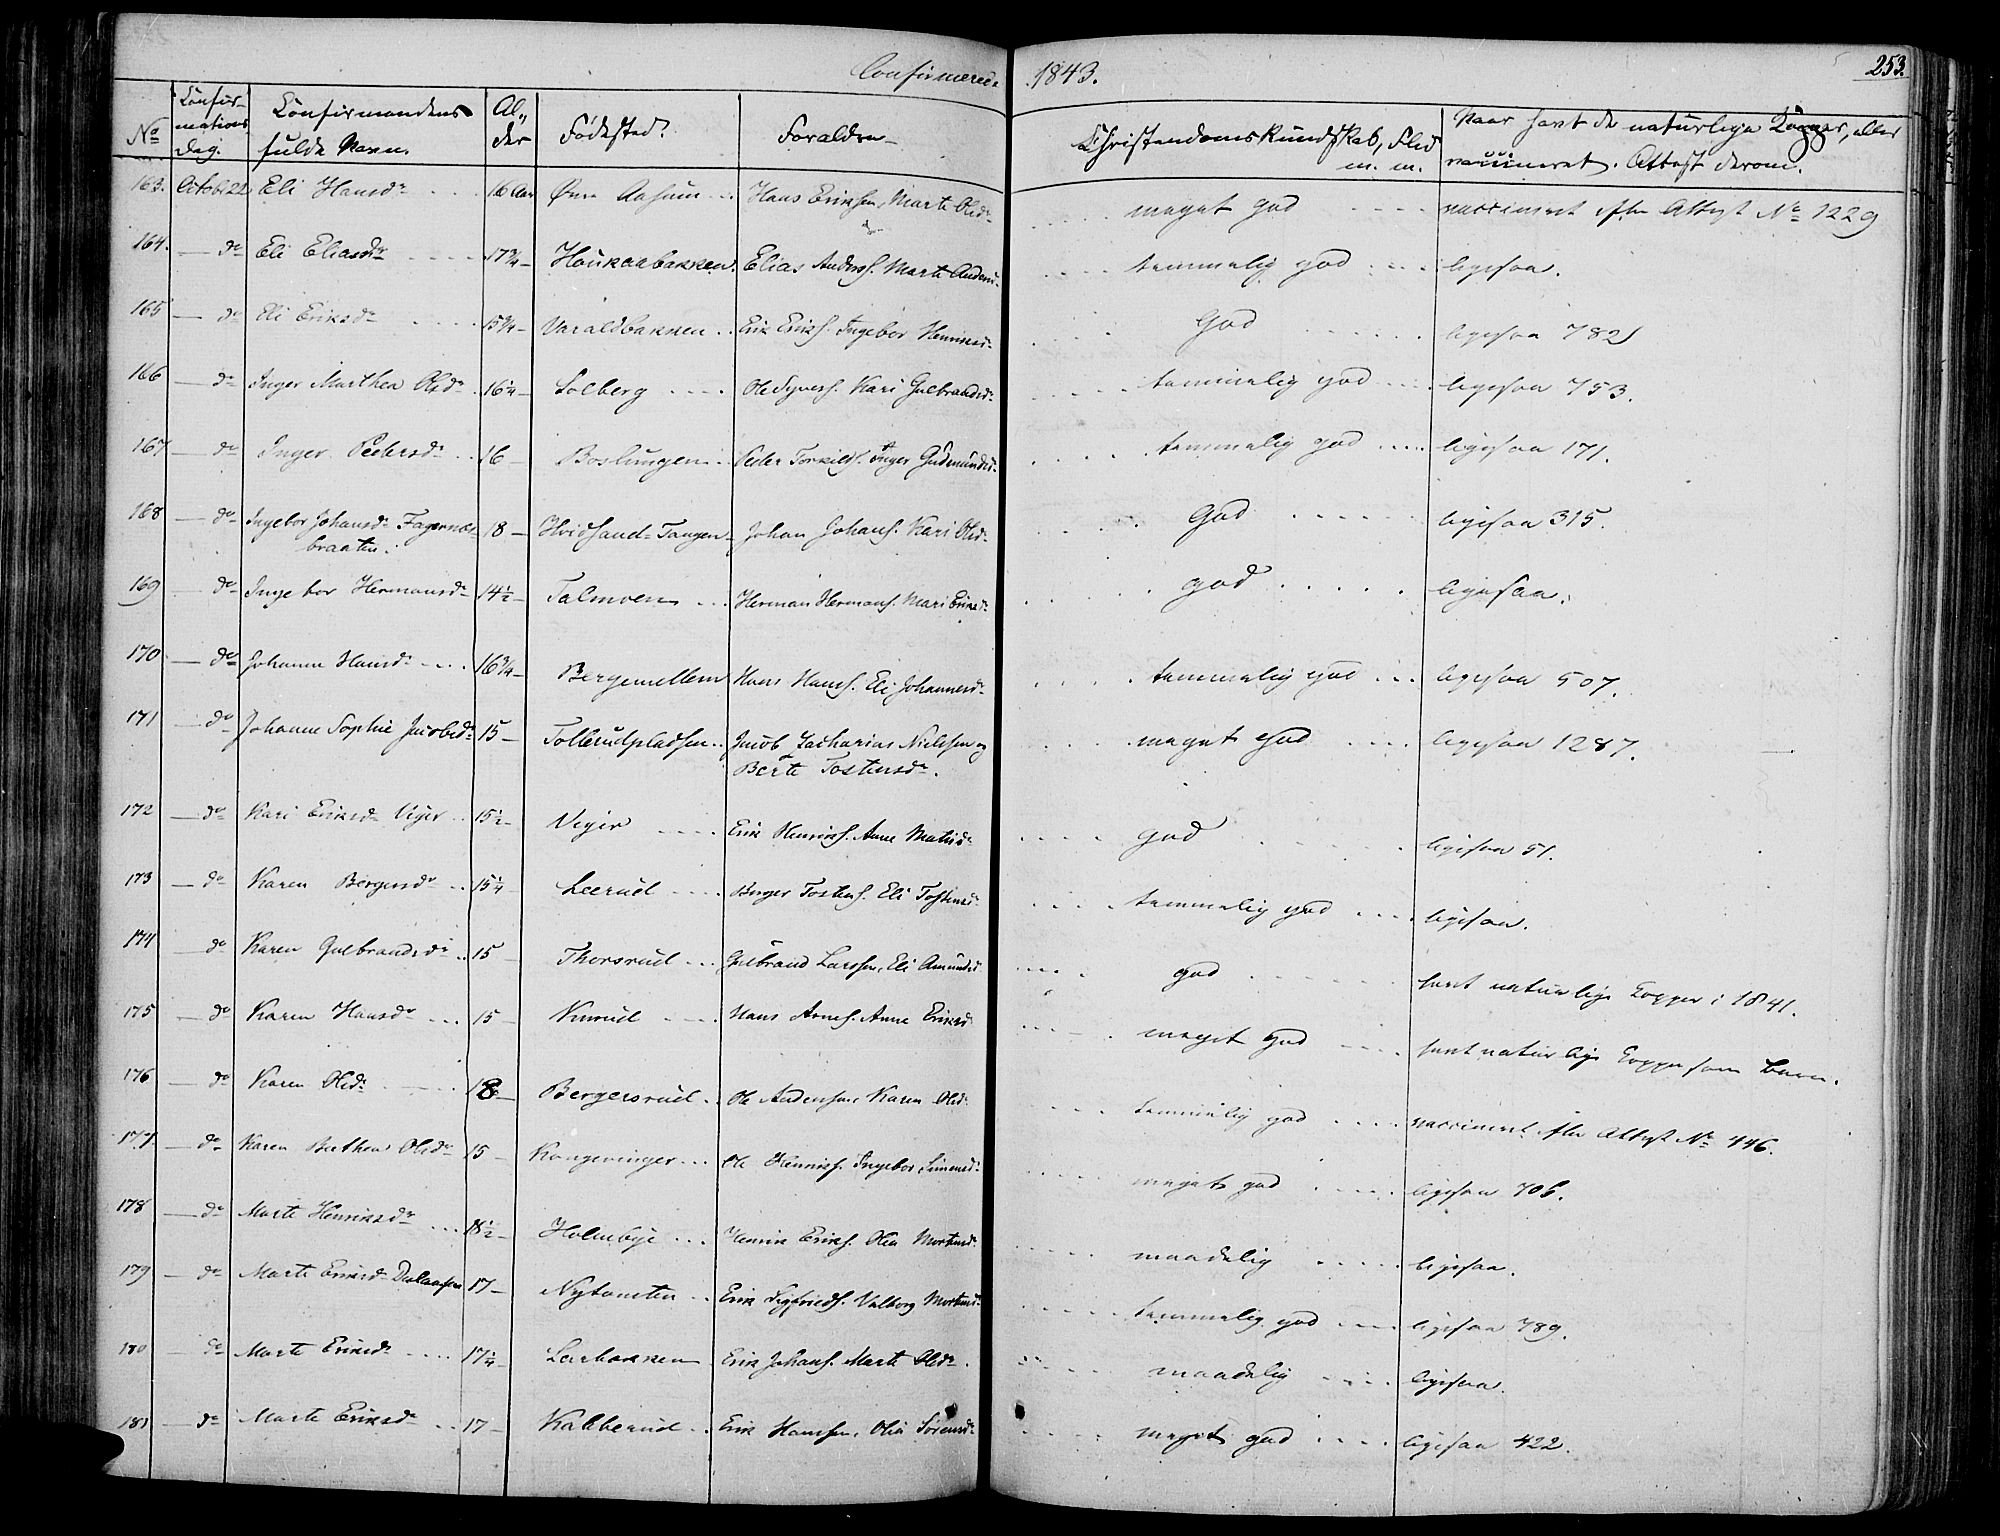 Confirmerede 1843. 253.
No Confirmations Dag. Confirmandens fulde Navn. Alder Fødested. Forældre Christendomskundskab, Flid m. m. Naar havt de naturlige Kopper, eller vaccineret. Attest derom.
163. Octob. 22 Eli Hansdr 16 Aar Øvre Aasum Hans Eriksen, Marte Olsdr meget god vaccineret efter Attest No 1229
164. do Eli Eliasdr 17 3/4 Haukaabakken. Elias Anders. Marte Andersdr temmelig god ligesaa.
165 do Eli Eriksdr 15 3/4 Varaldbakken Erik Eriks. Ingebor Henriksdr God ligesaa 782
166 do Inger Marthea Olsdr 16 1/4 Solberg Ole Syvers. Kari Gulbrandsdr temmelig god ligesaa 753.
167 do Inger Pedersdr 16 Boslungen Peder Torkilds. Inger Gudmundsdr temmelig god ligesaa 171.
168 do Ingebor Johansdr Fagernæs-
braaten. 18 Hvidsand-Tangen Johan Johans. Kari Olsdr God ligesaa 315.
169 do Ingebor Hermansdr 14 1/2 Talmoen Herman Hermans. Mari Eriksdr god ligesaa.
170 do Johanne Hansdr 16 3/4 Bergemellem Hans Hans. Eli Johannesdr temmelig god ligesaa 507.
171 do Johanne Sophie Jacobsdr 15 Tollerudpladsen Jacob Zacharias Nielsen og
Berte Tostensdr. meget god ligesaa 1287.
172 do Kari Eriksdr Viger 15 1/2 Viger Erik Henriks. Anne Matisdr god ligesaa 51.
173 do Karen Bergersdr 15 1/4 Leerud Berger Tostens. Eli Tostensdr temmelig god ligesaa.
174 do Karen Gulbrandsdr 15 Thorsrud Gulbrand Larssen, Eli Amundsdr god havt naturlige Kopper i 1841.
175 do Karen Hansdr 15 Knrud Hans Arnes. Anne Eriksdr meget god havt naturlige Kopper som Barn.
176 do Karen Olsdr 18 Bergersrud Ole Andersen, Karen Olsdr temmelig god vaccineret efter Attest No 446.
177. do Karen Berthea Olsdr 15 Kongevinger Ole Henriks. Ingebor Simensdr meget god ligesaa 706.
178 do Marte Henriksdr 18 1/2 Holmbye Henrik Eriks. Olea Mortensdr maadelig ligesaa.
179 do Marte Eriksdr 17 Nytomten Erik Sigfrieds. Valborg Mortensdr temmelig god ligesaa 789.
180 do Marte Eriksdr 17 1/4 Larbakken Erik Johans. Marte Olsdr. maadelig ligesaa.
181 do Marte Eriksdr 17 Kabberud Erik Hansen, Olia Sørensdr meget god ligesaa 422.